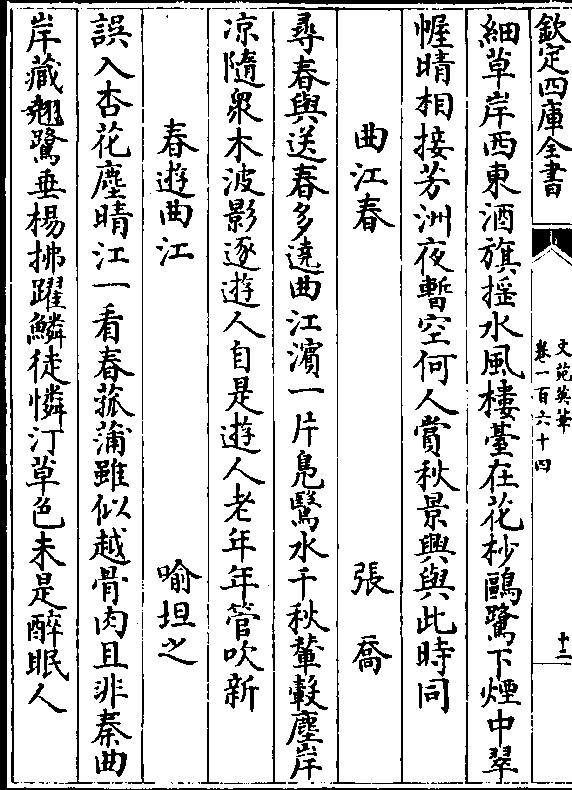 欽定四庫全書
文苑英華
卷一百六十四
十三
細草岸西東酒旗揺水風樓臺在花杪鷗鷺下煙中翠
幄晴相接芳洲夜暫空何人賞秋景興與此時同
曲江春
張喬
尋春與送春多遶曲江濵一片鳬鷖水千秋輦轂塵岸
凉隨衆木波影逐遊人自是遊人老年年管吹新
春遊曲江
喻坦之
誤入杏花塵晴江一看春菰蒲雖似越骨肉且非秦曲
岸藏翹鷺垂楊拂躍鱗徒憐汀草色未是醉眠人